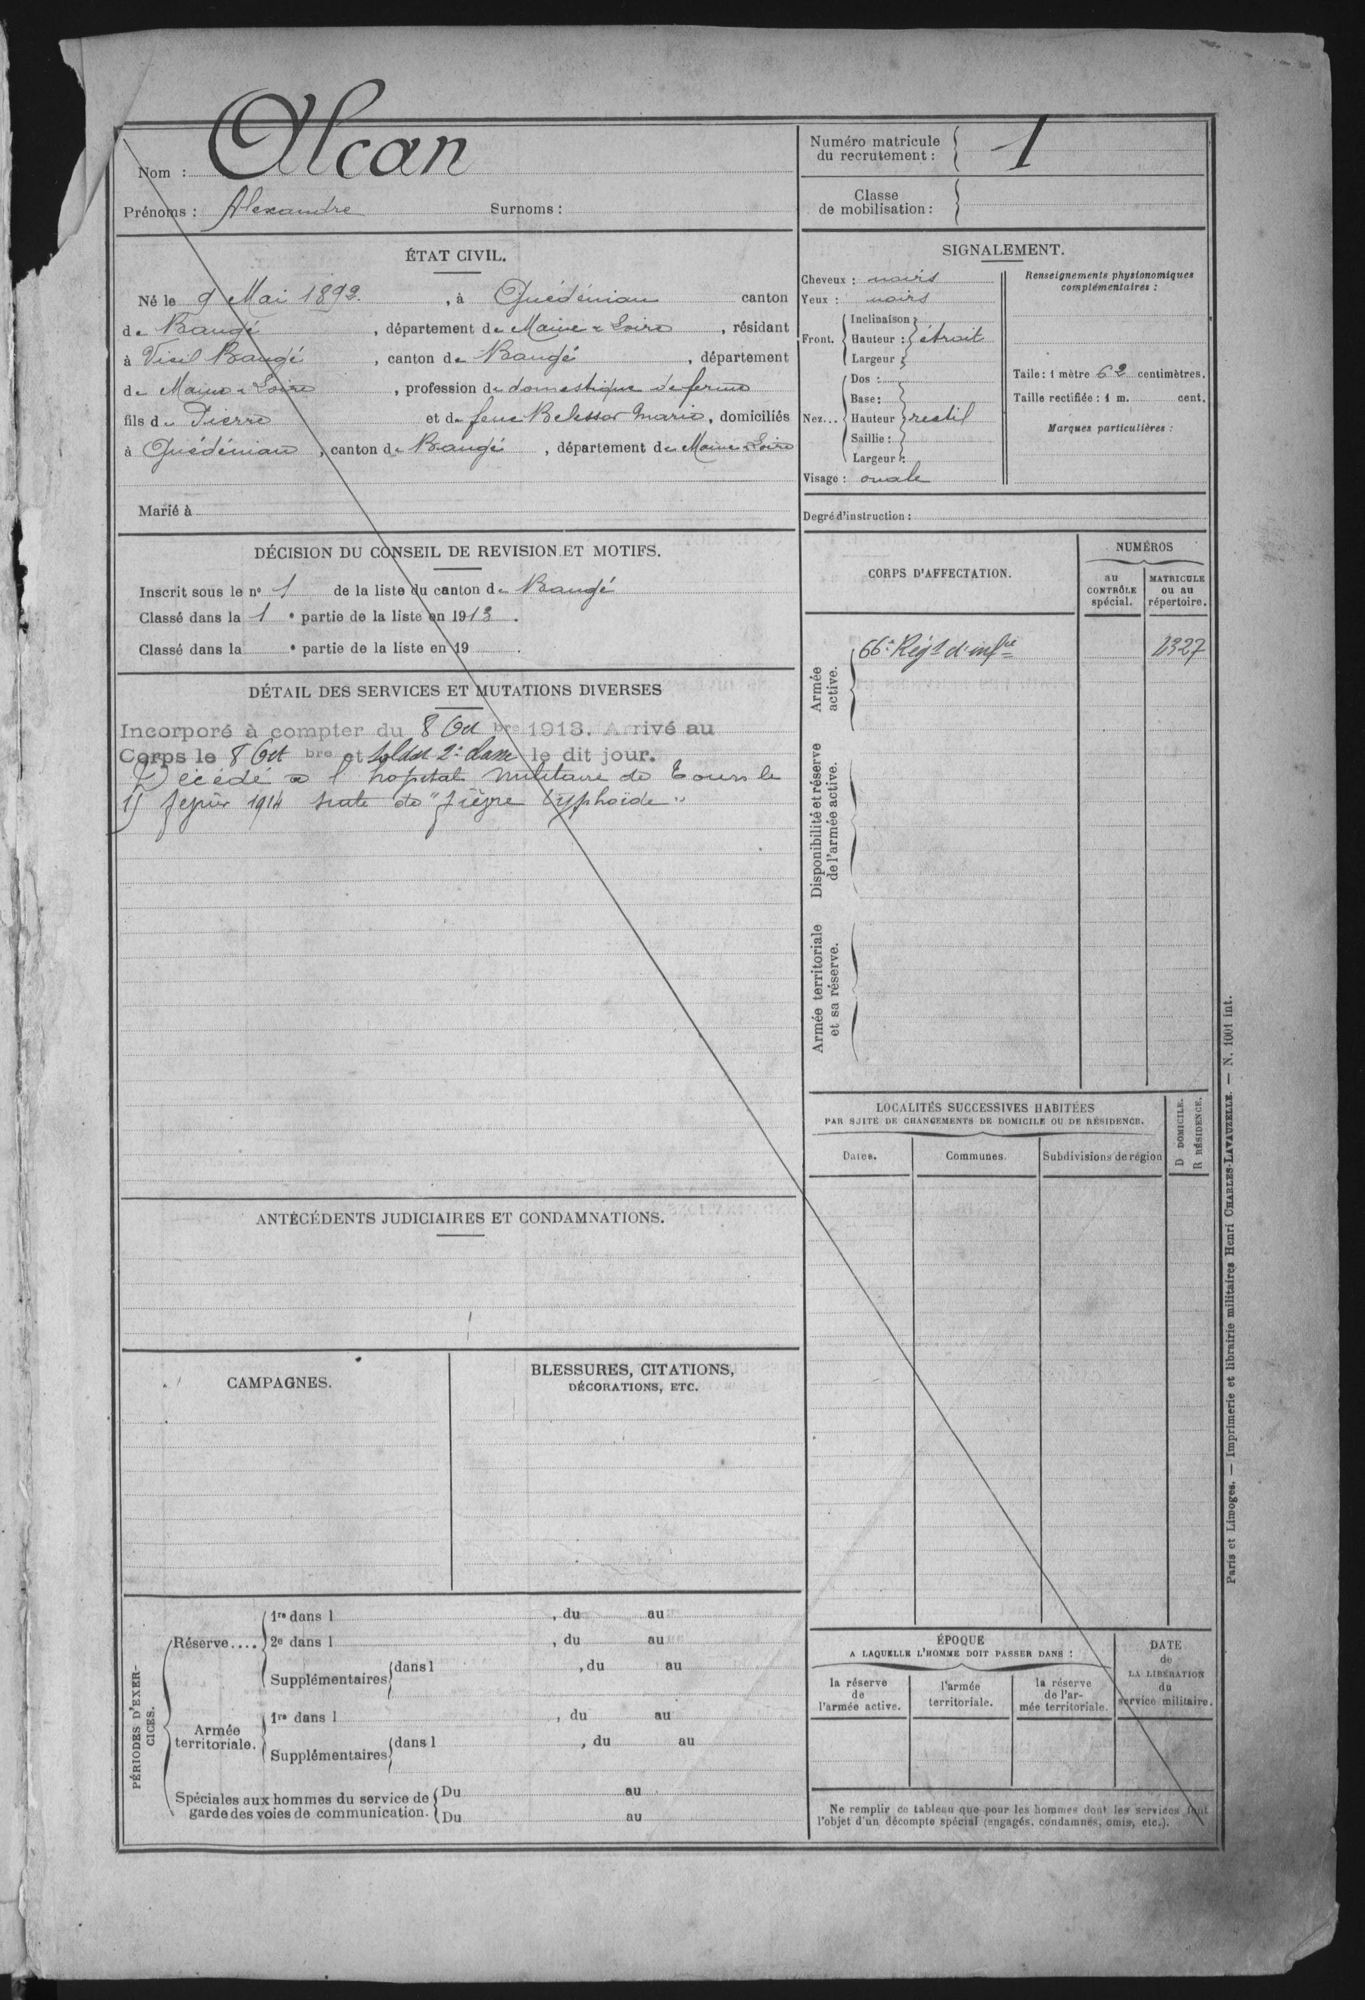 Nom : Alcan
Prénoms : Alexandre Surnoms :
Numéro matricule
du recrutement : 1
Classe
de mobilisation :
ÉTAT CIVIL.
Né le 9 Mai 1893, à canton
de Baugé, département de Maine & Loire, résidant
à Vieil Baugé, canton de Baugé, département
de Maine & Loire, profession de domestique de ferme
fils de Pierre et de feue Marie, domiciliés
à , canton de Baugé, département de Maine & Loire
Marié à
SIGNALEMENT.
Cheveux : noirs
Yeux : noirs
Front. Inclinaison :
Hauteur : étroit
Largeur :
Nez... Dos :
Base :
Hauteur rectil
Saillie :
Largeur :
Visage : ovale
Renseignements physionomiques
complémentaires :
Taille : 1 mètre 62 centimètres.
Taille rectifiée : 1 m. cent.
Marques particulières :
Degré d'instruction :
DÉCISION DU CONSEIL DE REVISION ET MOTIFS.
Inscrit sous le nº 1 de la liste du canton de Baugé
Classé dans la 1 e partie de la liste en 1913.
Classé dans la e partie de la liste en 19 .
DÉTAIL DES SERVICES ET MUTATIONS DIVERSES
Incorporé à compter du 8 Oct bre 1913. Arrivé au
Corps le 8 Oct bre et soldat 2e classe le dit jour.
Décédé à l'hôpital militaire de Tours le
février 1914 suite de "fièvre typhoïde"
CORPS D'AFFECTATION.
NUMÉROS
au
CONTRÔLE
spécial.
MATRICULE
ou au
répertoire.
Armée
active.
66e Régt d'infie
Disponibilité et réserve
de l'armée active.
Armée territoriale
et sa réserve.
LOCALITÉS SUCCESSIVES HABITÉES
PAR SUITE DE CHANGEMENTS DE DOMICILE OU DE RÉSIDENCE.
Dates.
Communes.
Subdivisions de région
D DOMICILE.
R RÉSIDENCE.
ANTÉCÉDENTS JUDICIAIRES ET CONDAMNATIONS.
CAMPAGNES.
BLESSURES, CITATIONS,
DÉCORATIONS, ETC.
PÉRIODES D'EXER-
CICES.
Réserve....
1re dans l , du au
2e dans l , du au
Supplémentaires dans l , du au
Armée
territoriale.
1re dans l , du au
Supplémentaires dans l , du au
Spéciales aux hommes du service de
garde des voies de communication.
Du au
Du au
ÉPOQUE
A LAQUELLE L'HOMME DOIT PASSER DANS :
la réserve
de
l'armée active.
l'armée
territoriale.
la réserve
de l'ar-
mée territoriale.
DATE
de
LA LIBÉRATION
du
service militaire.
Ne remplir ce tableau que pour les hommes dont les services font
l'objet d'un décompte spécial (engagés, condamnés, omis, etc.).
Paris et Limoges. — Imprimerie et librairie militaires Henri CHARLES-LAVAUZELLE. — N. 1001 int.